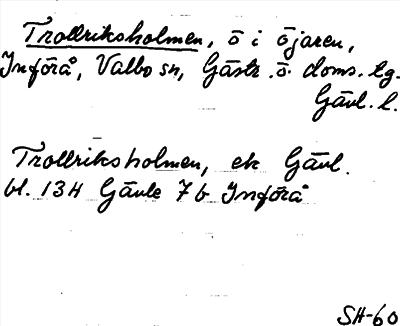 Trollriksholmen, ö i Öjaren,
Införå, Valbo sn, Gästr. ö. doms. tg.
Gävl. l.
Trollriksholmen, ek Gävl.
bl. 13H Gävle 7b Införå
SH-60